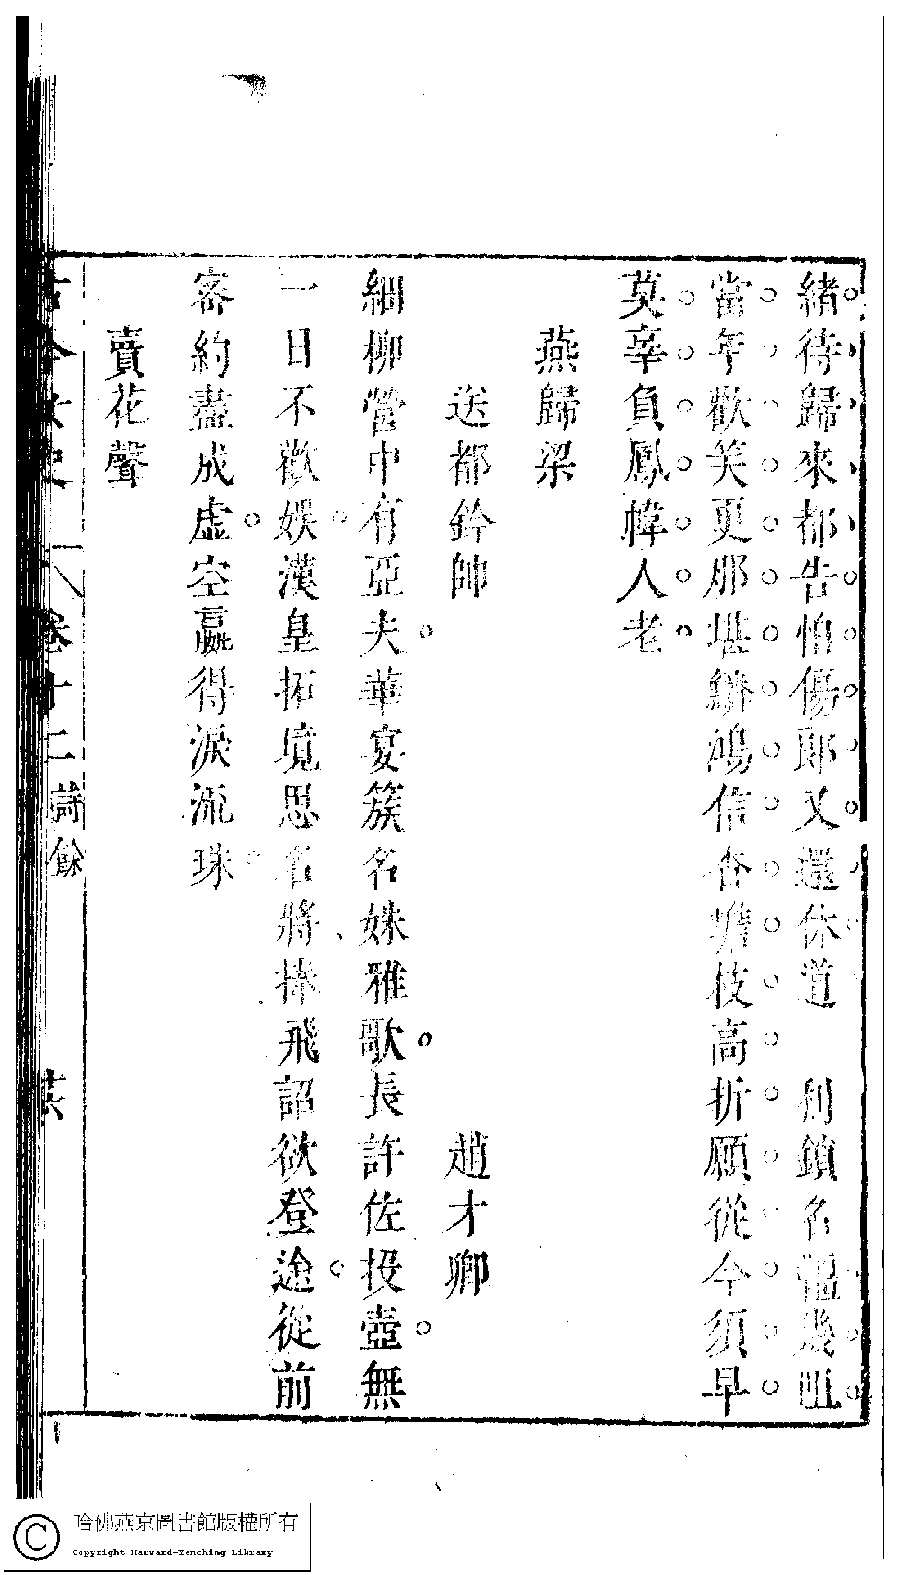 緒待歸來都告怕傷郎又還休道 利鎖名韁幾阻
當年歡笑更那堪鱗鴻信杳蟾枝高折願從今須早
莫辜負鳳幃人老
燕歸梁
送都鈐帥 趙才卿
細柳營中有亞夫華宴簇名姝雅歌長許佐投壺無
一日不歡娛漢皇拓境思名將捧飛詔欲登途從前
密約盡成虛空贏得淚流珠
賣花聲
古今女史 卷十二 詩餘
哈佛燕京圖書館版權所有
Copyright Harvard-Yenching Library